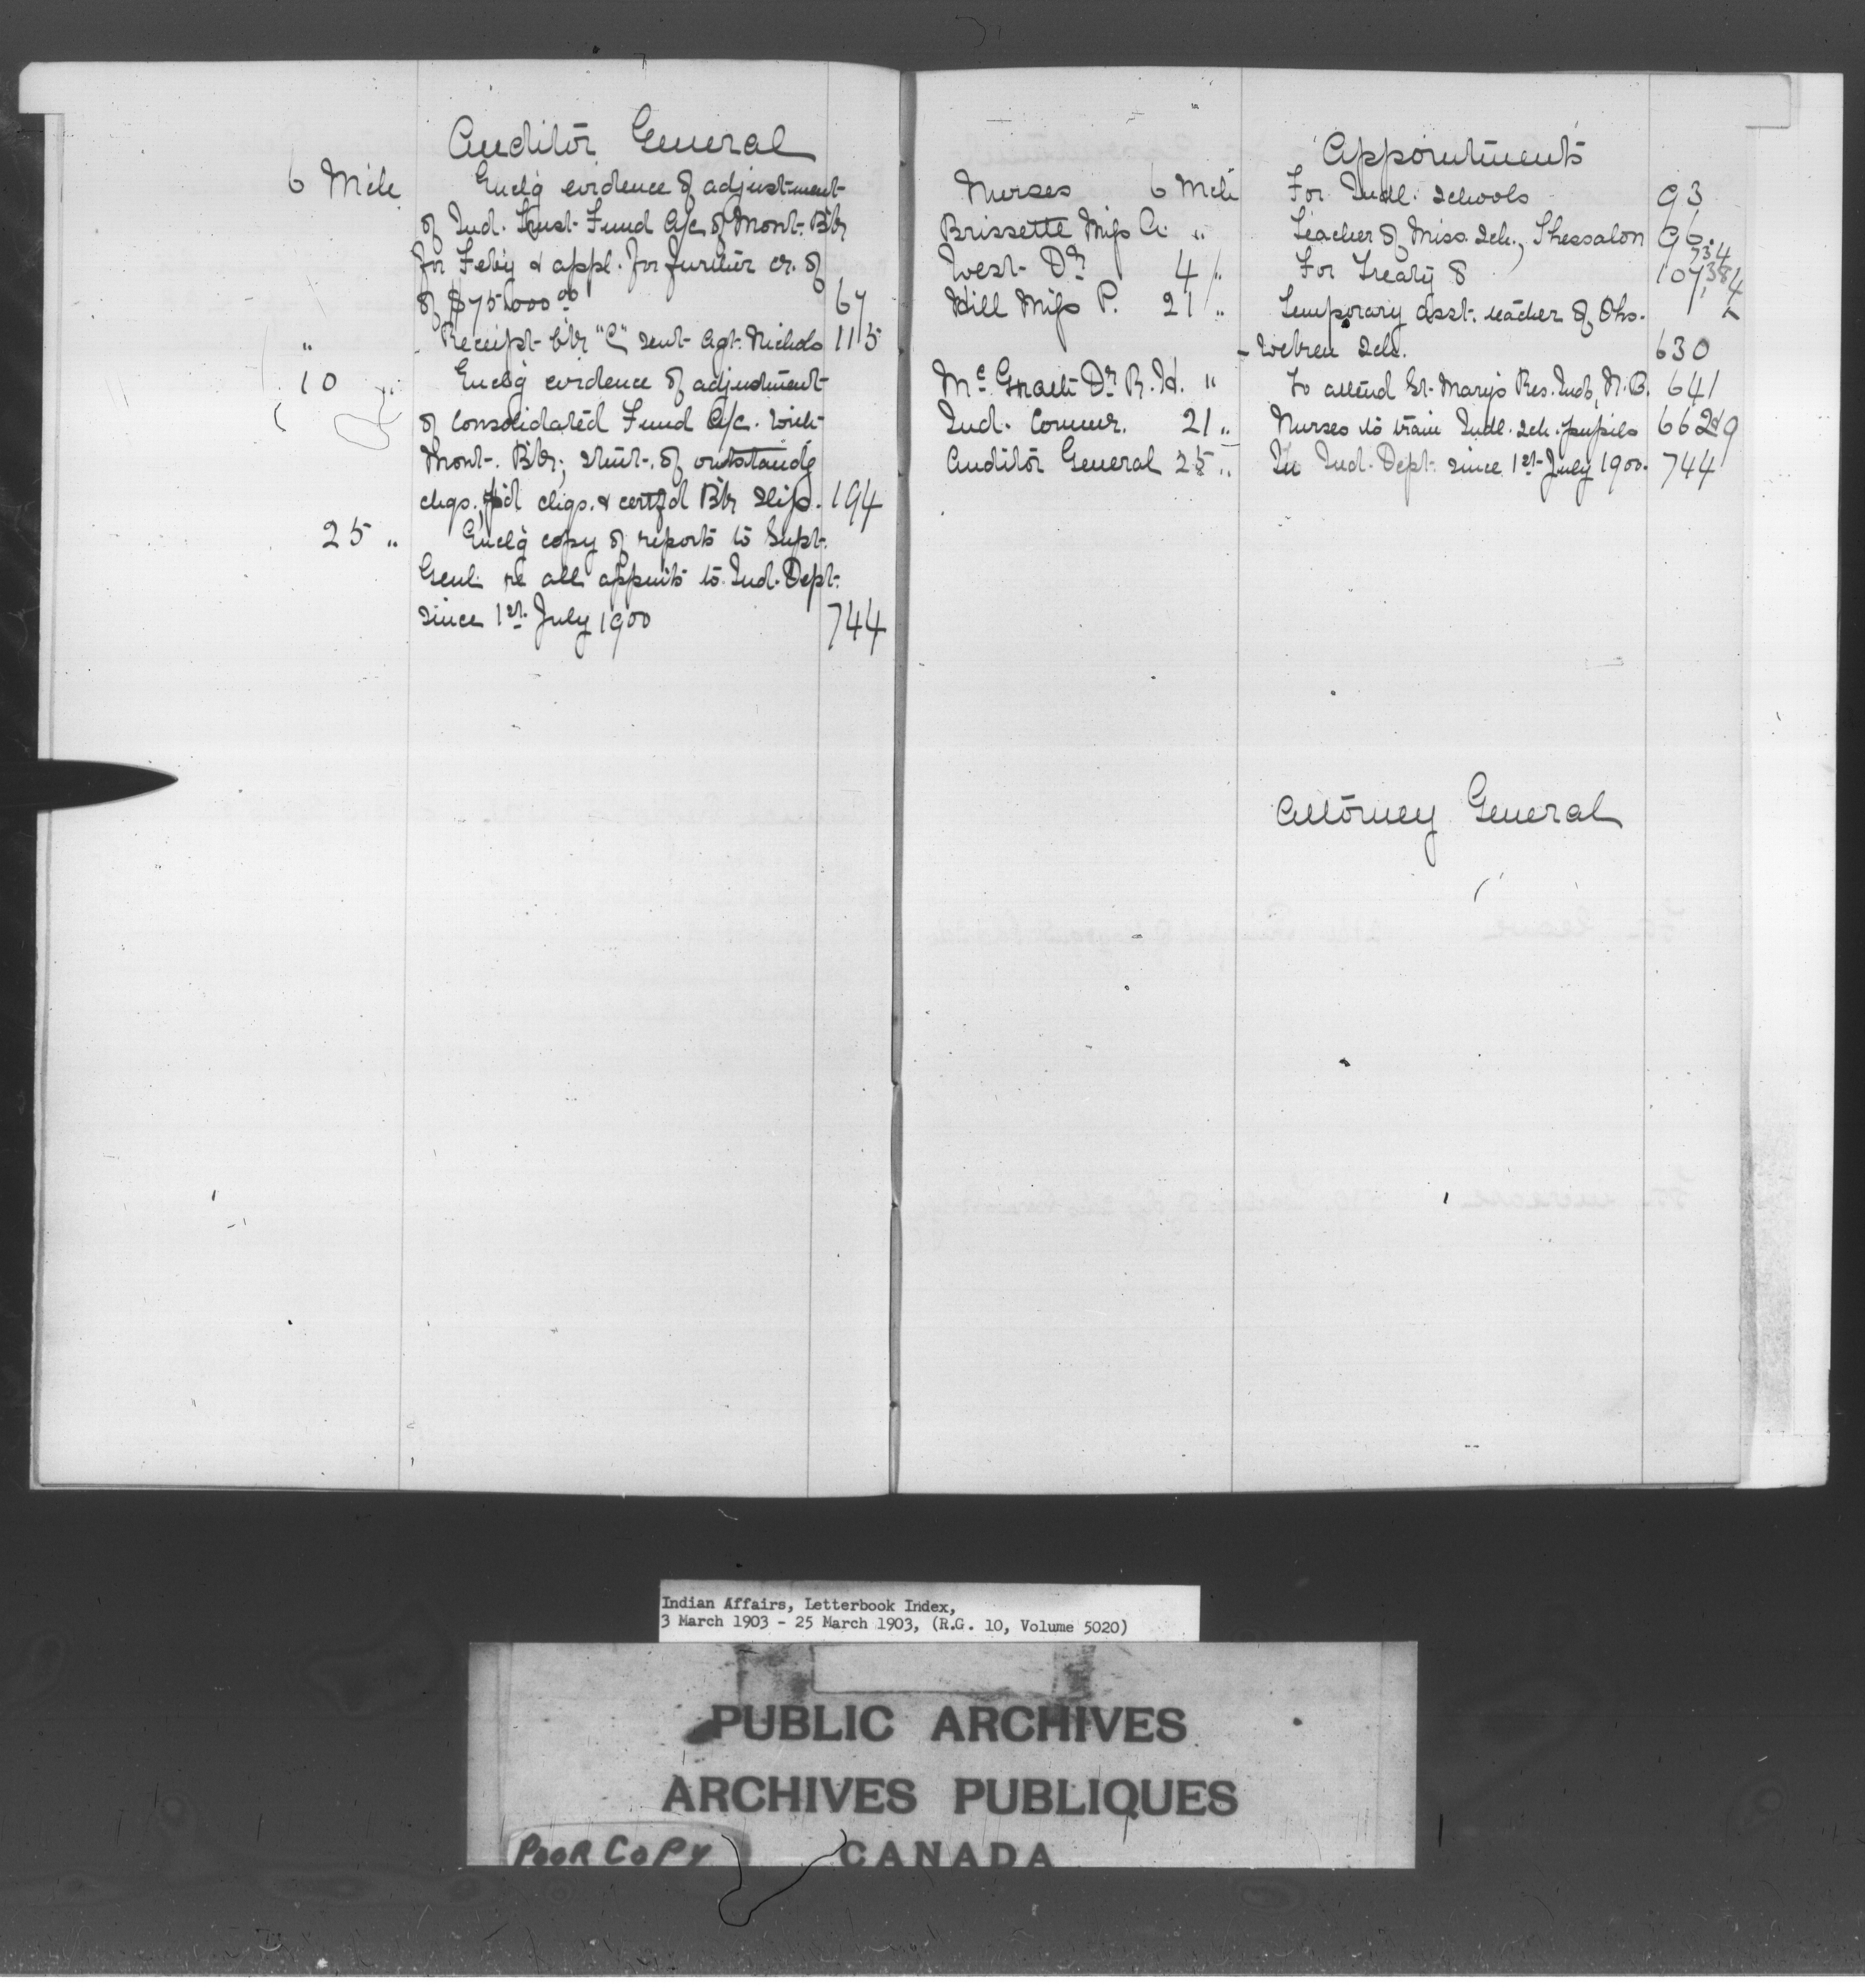 Auditor General
6 Mch Enclg evidence of adjustment
of Ind. Trust Fund A/c of Mont. B'k
for Feb'y & appl. for further cr. of
of $75,000 00 67
" Receipt b'k "C" sent Agt. Nichols 115
10 " Enclg evidence of adjustment
of Consolidated Fund A/c. with
Mont. B'k; stmt. of outstandg
chqs. p'd chqs. & certfd B'k slip. 194
25 " Enclg copy of reports to Supt.
Genl. re all appmts to Ind. Dept.
since 1st July 1900 744
Appointments
Nurses 6 Mch For Indl. Schools 93
Brissette Miss A. " Teacher of Miss. Sch., Thessalon 96.
West Dr 4 " For Treaty 8 107,
Hill Miss P. 21 " Temporary asst. teacher of Oho-
-weken Sch. 630
Mc Grath Dr R. H. " To attend St. Mary's Res. Inds, N.B. 641
Ind. Commr. 21 " Nurses to train Indl. Sch. pupils 662
Auditor General 25 " In Ind. Dept. since 1st July 1900. 744
Attorney General
Indian Affairs, Letterbook Index,
3 March 1903 - 25 March 1903, (R.G. 10, Volume 5020)
PUBLIC ARCHIVES
ARCHIVES PUBLIQUES
POOR COPY CANADA